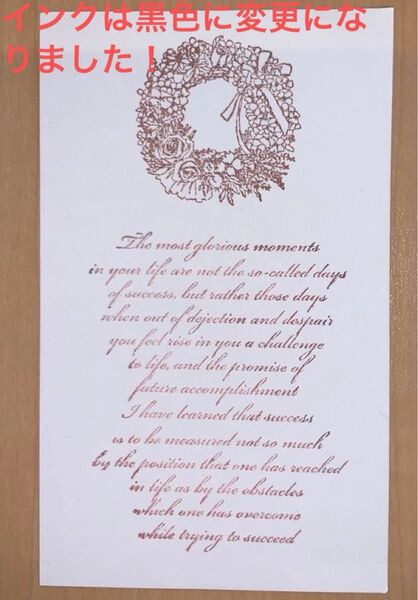 インクは黒色に変更にな
りました！
The most glorious moments
in your life are not the so-called days
of success, but rather those days
when out of dejection and despair
you feel rise in you a challenge
to life, and the promise of
future accomplishment
I have learned that success
is to be measured not so much
by the position that one has reached
in life as by the obstacles
which one has overcome
while trying to succeed